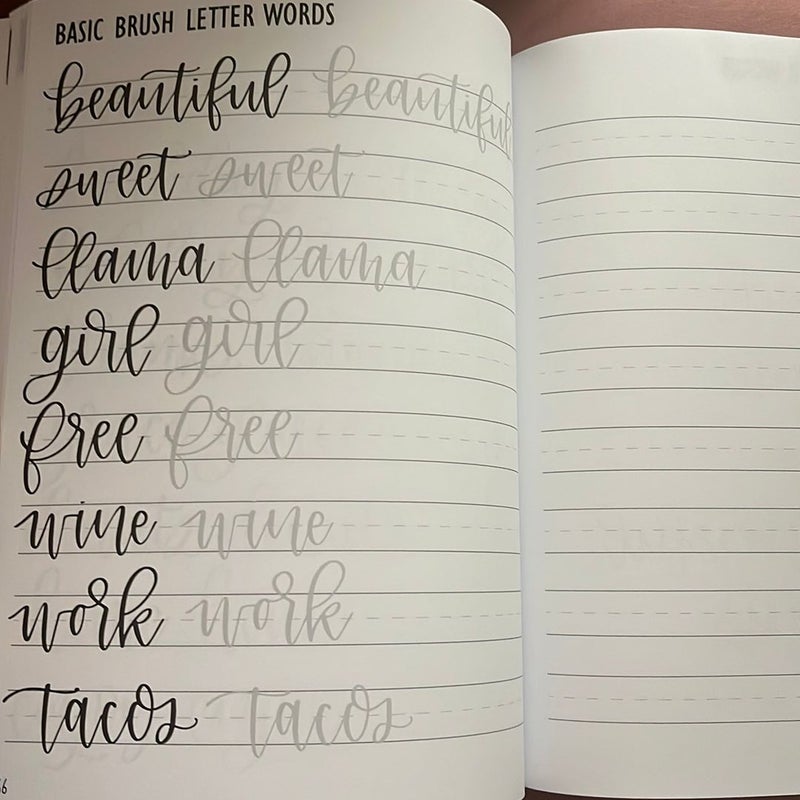 BASIC BRUSH LETTER WORDS
beautiful beautiful
sweet sweet
llama llama
girl girl
free free
wine wine
work work
tacos tacos